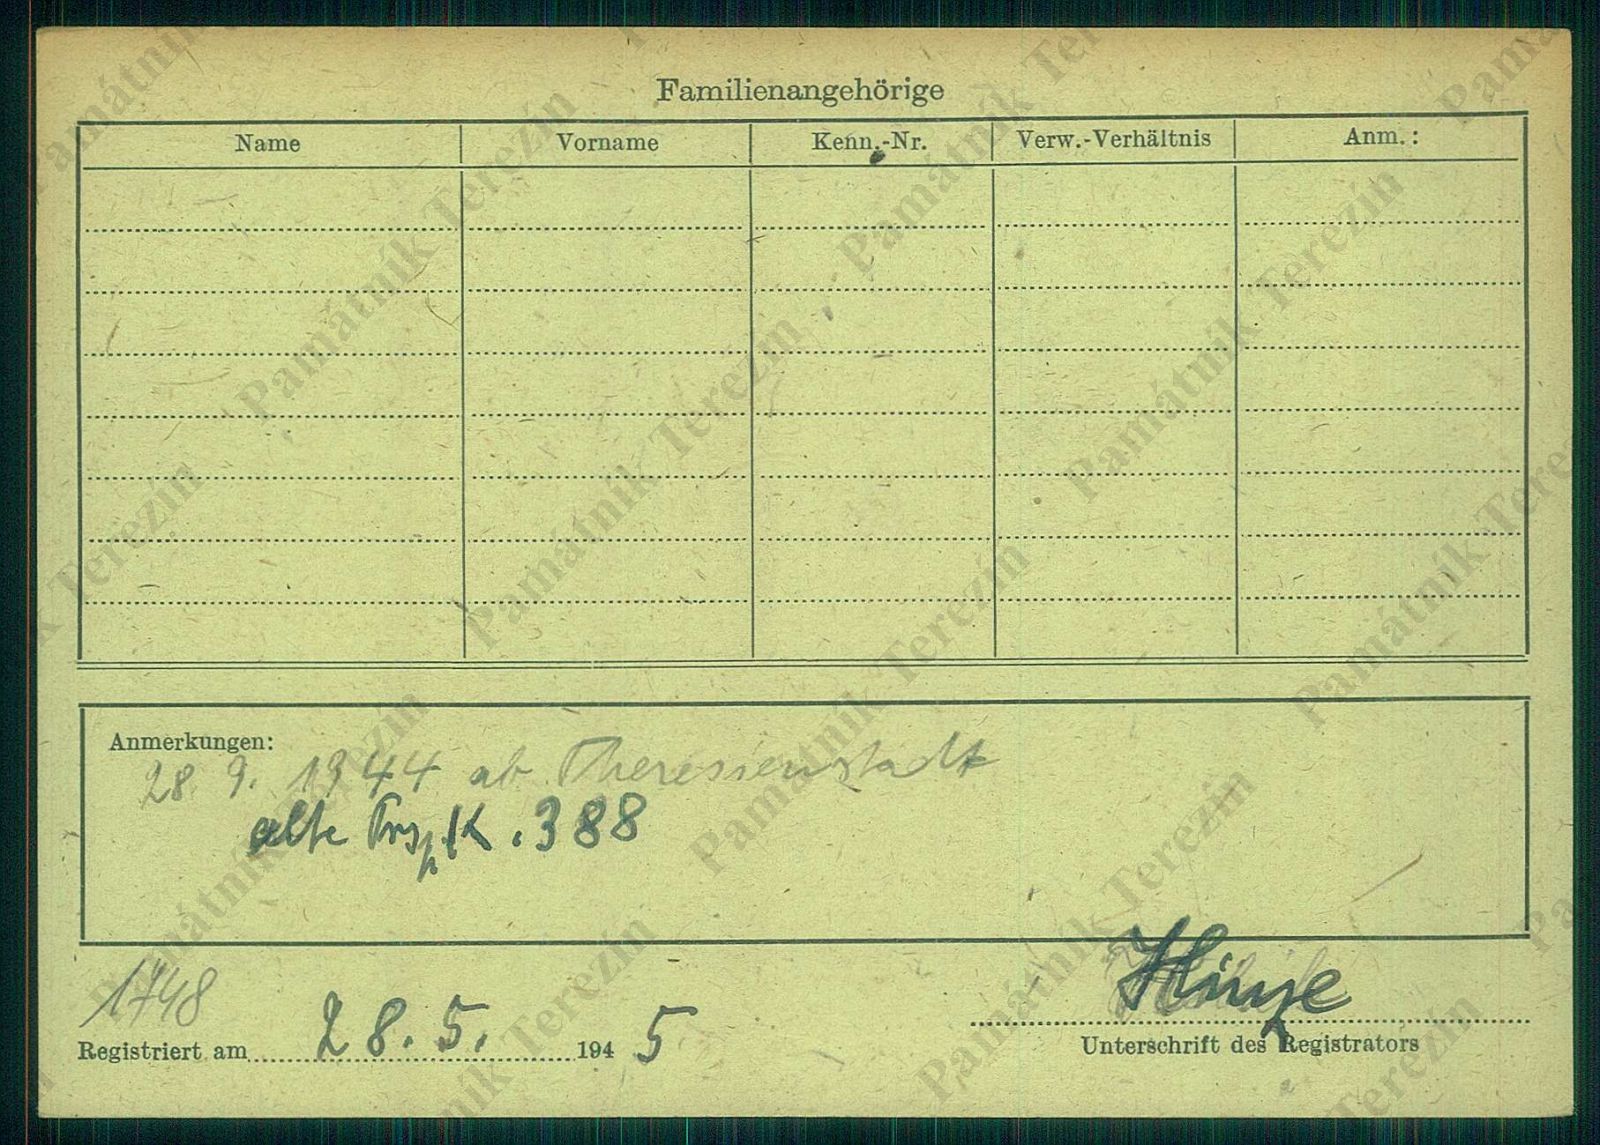 Familienangehörige
Name Vorname Kenn.-Nr. Verw.-Verhältnis Anm.:
Anmerkungen:
28. 9. 1944 ab Theresienstadt
alte 388
1748
Registriert am 28. 5. 194 5
Unterschrift des Registrators
Památník Terezín